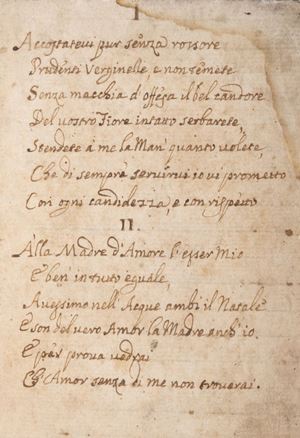 I
Accostatevi pur senza rossore
Prudenti Verginelle, e non temete
Senza macchia d'offesa il bel candore
Del vostro Fiore intatto serbarete,
Stendete à me la Man quanto volete,
Che di sempre servirvi io vi prometto
Con ogni candidezza, e con rispetto
II.
Alla Madre d'Amore l'esser Mio
E ben in tutto eguale,
Avessimo nell'Acque ambi il Natale
E son del vero Amor la Madre anch'io.
E per prova vedrai
Ch'Amor senza di me non trouerai.